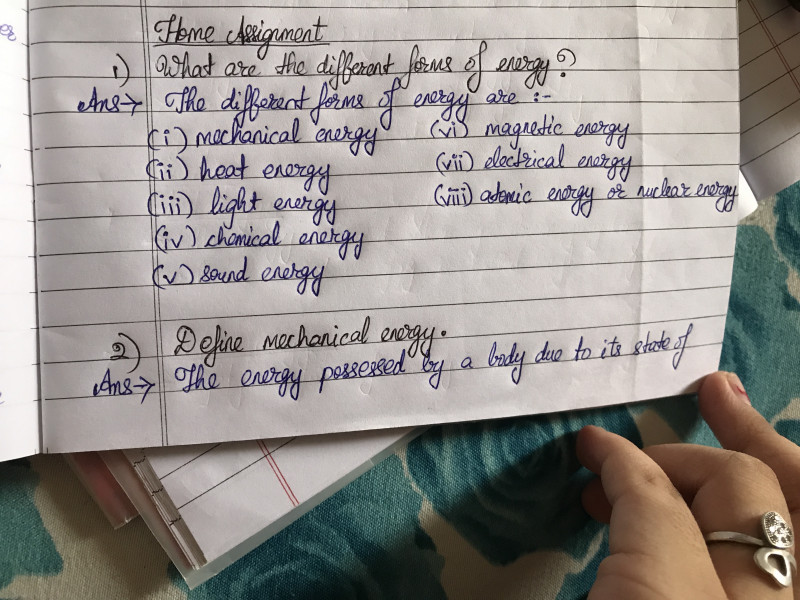 Home Assignment
1) What are the different forms of energy?
Ans→ The different forms of energy are :-
(i) mechanical energy (vi) magnetic energy
(ii) heat energy (vii) electrical energy
(iii) light energy (viii) atomic energy or nuclear energy
(iv) chemical energy
(v) sound energy
2) Define mechanical energy.
Ans→ The energy possessed by a body due to its state of